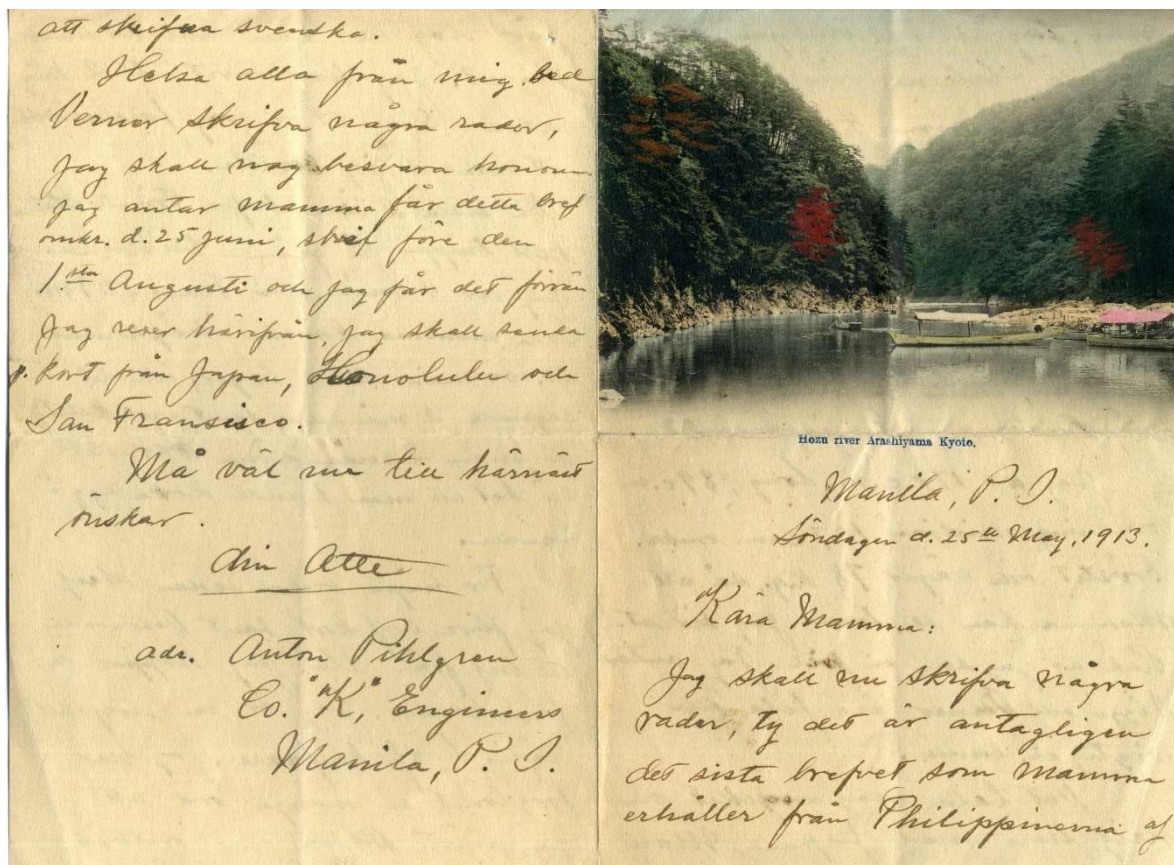 att skrifva svenska.
Helsa alla från mig. bed
Verner skrifva några rader,
jag skall nog besvara honom
jag antar mamma får detta bref
omkr. d. 25 juni, skrif före den
1.sta Augusti och jag får det förrän
jag reser härifrån, jag skall sända
p. kort från Japan, Honolulu och
San Fransisco.
Må väl nu till härnäst
önskar.
din Atte
adr. Anton Pihlgren
Co. "K", Engineers
Manila, P. I.
Hozu river Arashiyama Kyoto.
Manila, P. I.
Söndagen d. 25th May, 1913.
Kära Mamma:
Jag skall nu skrifva några
rader, ty det är antagligen
det sista brefvet som mamma
erhåller från Philippinerna af